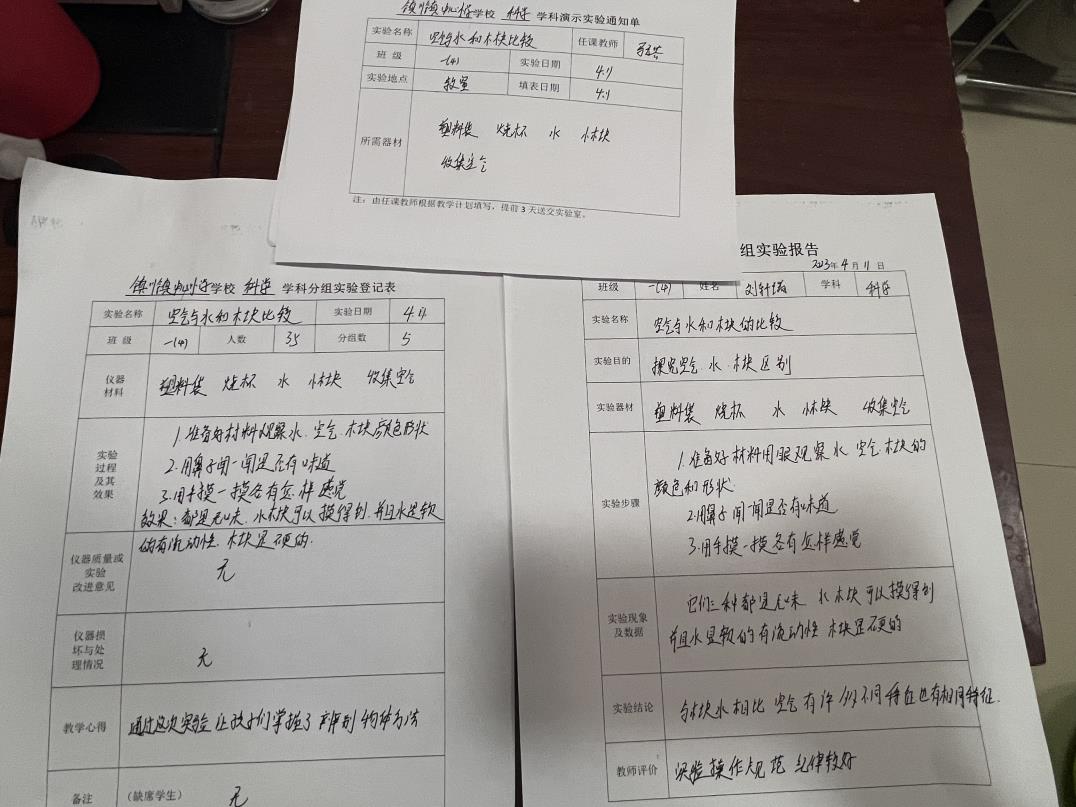 学校 科学 学科演示实验通知单
实验名称 空气与水和木块比较 任课教师
班 级 一(4) 实验日期 4.11
实验地点 教室 填表日期 4.1
所需器材 塑料袋 烧杯 水 木块
收集空气
注：由任课教师根据教学计划填写，提前3天送交实验室。
学校 科学 学科分组实验登记表
实验名称 空气与水和木块比较 实验日期 4.11
班 级 一(4) 人数 35 分组数 5
仪器
材料
塑料袋 烧杯 水 木块 收集空气
实验
过程
及其
效果
1.准备好材料观察水.空气.木块颜色形状
2.用鼻子闻一闻是否有味道
3.用手摸一摸各有怎样感觉
效果：都是无味.水木块可以摸得到.并且水是软
的有流动性.木块是硬的.
仪器质量或
实验
改进意见
无
仪器损
坏与处
理情况
无
教学心得 通过这次实验 让孩子们掌握了 辨别 物体方法
备注 (缺席学生) 无
组实验报告
2023年 4 月 11 日
班级 一(4) 姓名 学科 科学
实验名称 空气与水和木块的比较
实验目的 探究空气.水.木块区别
实验器材 塑料袋 烧杯 水 木块 收集空气
实验步骤
1.准备好材料用眼观察水 空气.木块的
颜色和形状.
2.用鼻子闻一闻是否有味道
3.用手摸一摸各有怎样感觉
实验现象
及数据
它们三种都是无味 水木块可以摸得到
并且水是软的有流动性 木块是硬的
实验结论 与木块水相比 空气有许多不同特征也有相同特征.
教师评价 实验操作规范 纪律较好